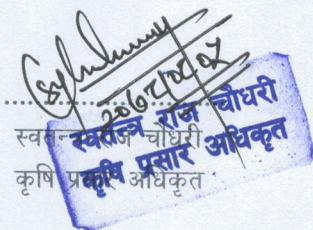 २०७८/०८/०८
स्वतन्त्र राज चौधरी
कृषि प्रसार अधिकृत
स्वतन्त्र राज चौधरी
कृषि प्रसार अधिकृत